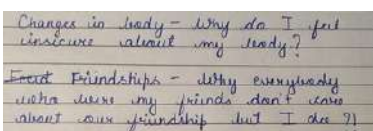 Changes in body - Why do I feel
insicure about my body?
Friendships - Why everybody
who were my friends don't care
about our friendship but I do ?!